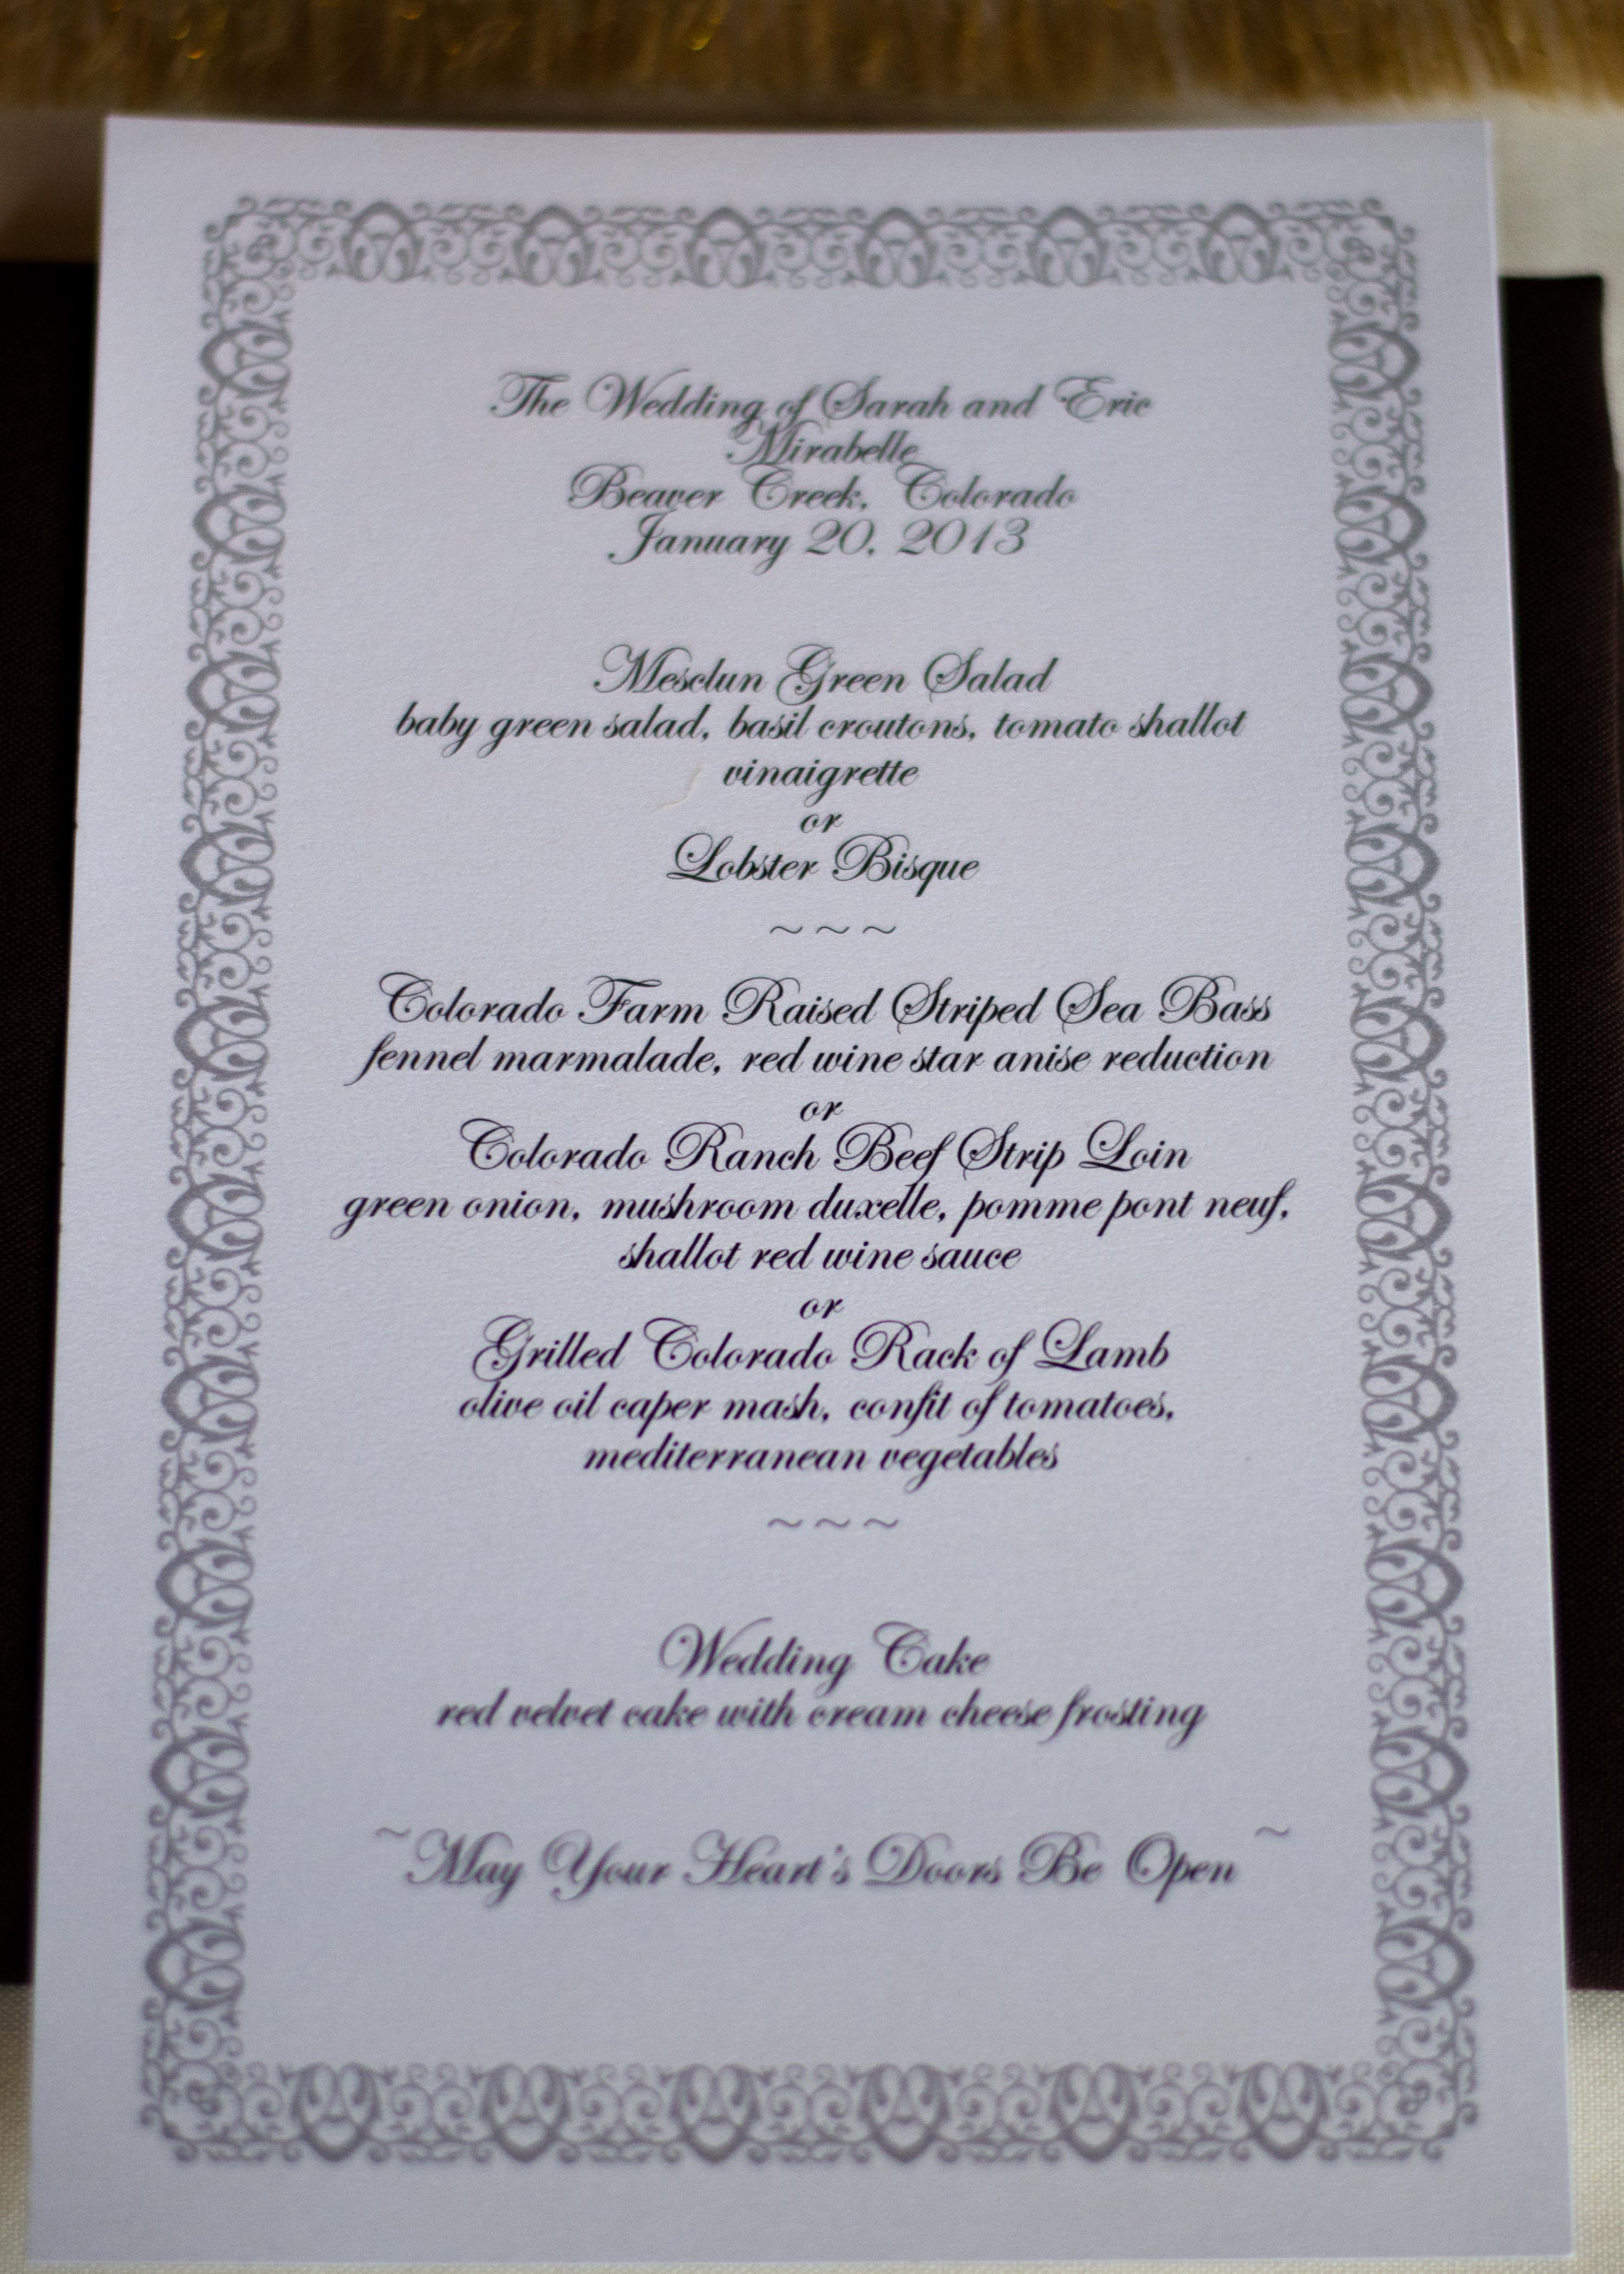 The Wedding of Sarah and Eric
Mirabelle
Beaver Creek, Colorado
January 20, 2013
Mesclun Green Salad
baby green salad, basil croutons, tomato shallot
vinaigrette
or
Lobster Bisque
~ ~ ~
Colorado Farm Raised Striped Sea Bass
fennel marmalade, red wine star anise reduction
or
Colorado Ranch Beef Strip Loin
green onion, mushroom duxelle, pomme pont neuf,
shallot red wine sauce
or
Grilled Colorado Rack of Lamb
olive oil caper mash, confit of tomatoes,
mediterranean vegetables
~ ~ ~
Wedding Cake
red velvet cake with cream cheese frosting
~ May Your Heart's Doors Be Open ~